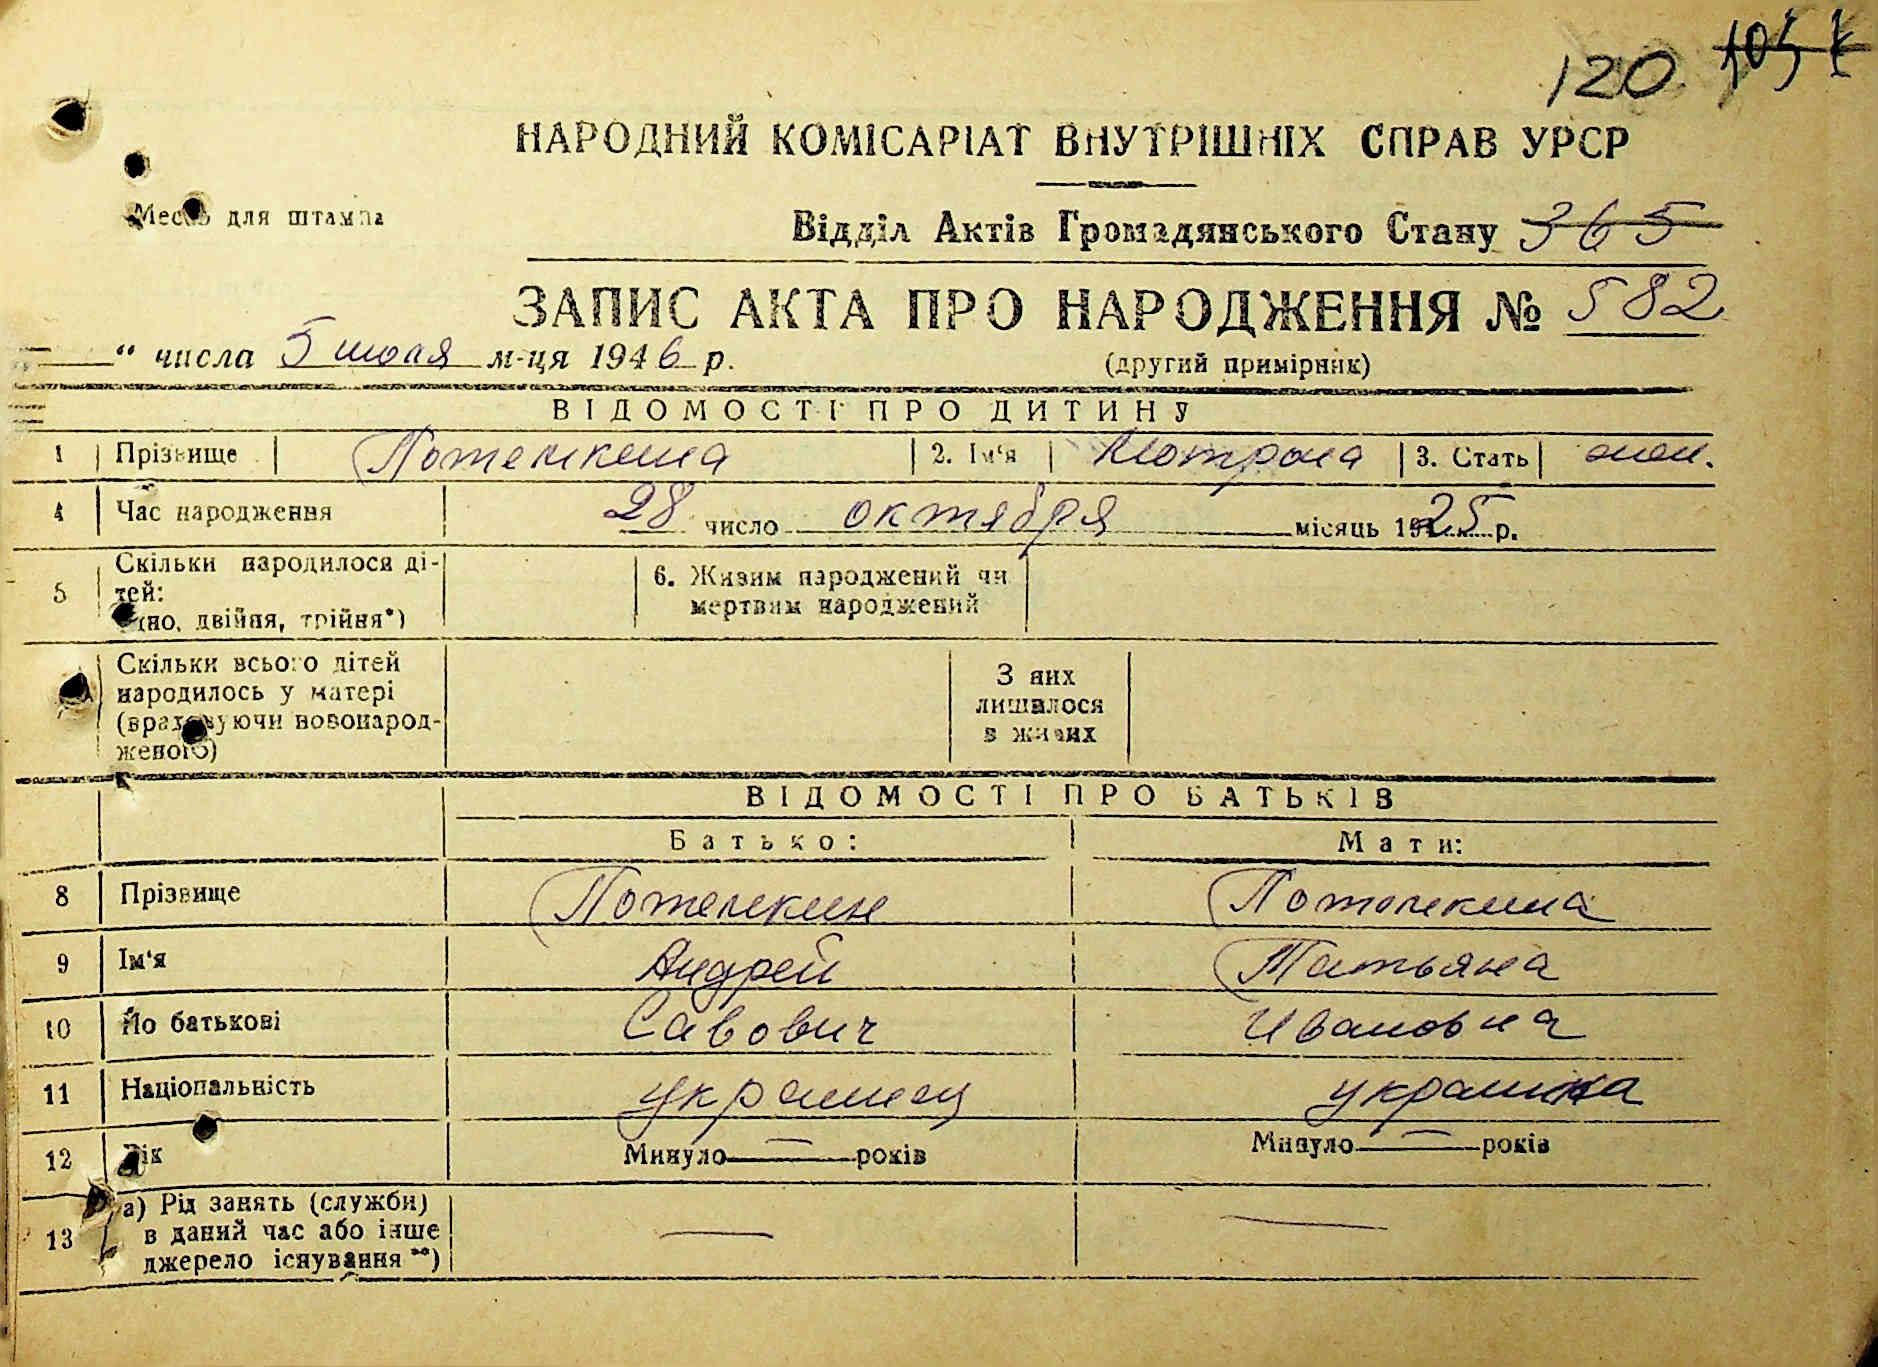 120
НАРОДНИЙ КОМІСАРІАТ ВНУТРІШНІХ СПРАВ УРСР
Место для штампа
Відділ Актів Громадянського Стану 365
ЗАПИС АКТА ПРО НАРОДЖЕННЯ № 582
“ числа 5 июля м-ця 1946 р.
(другий примірник)
ВІДОМОСТІ ПРО ДИТИНУ
1 Прізвище Потемкина 2. Ім'я Мотрона 3. Стать жен.
4 Час народження 28 число октября місяць 1925 р.
5 Скільки народилося ді-
тей:
(но, двійня, трійня*)
6. Живим народжений чи
мертвим народжений
Скільки всього дітей
народилось у матері
(враховуючи новонарод-
женого)
З яих
лишалося
в живих
ВІДОМОСТІ ПРО БАТЬКІВ
Батько: Мати:
8 Прізвище Потемкин Потемкина
9 Ім'я Андрей Татьяна
10 По батькові Савович Ивановна
11 Національність украинец украинка
12 Вік Минуло — років Минуло — років
13 а) Рід занять (служби)
в даний час або інше
джерело існування **)